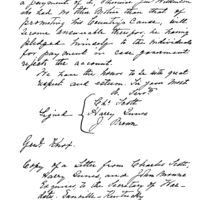 a payment of L. Thomas
she had no other Motive than that of
promoting his Country's Cause, will
become answerable therefor, he having
pledged himself to the individuals
for payment in case government
rejects the account.
We have the honor to be with great
respect and esteem Sir your most
o. Servts
Chs Scott
Signed Harry Innes
J. Brown
Genl Knox.
Copy of a Letter from Charles Scott,
Harry Innes, and John
Esquires to the Secretary of War
date, Danville Kentucky